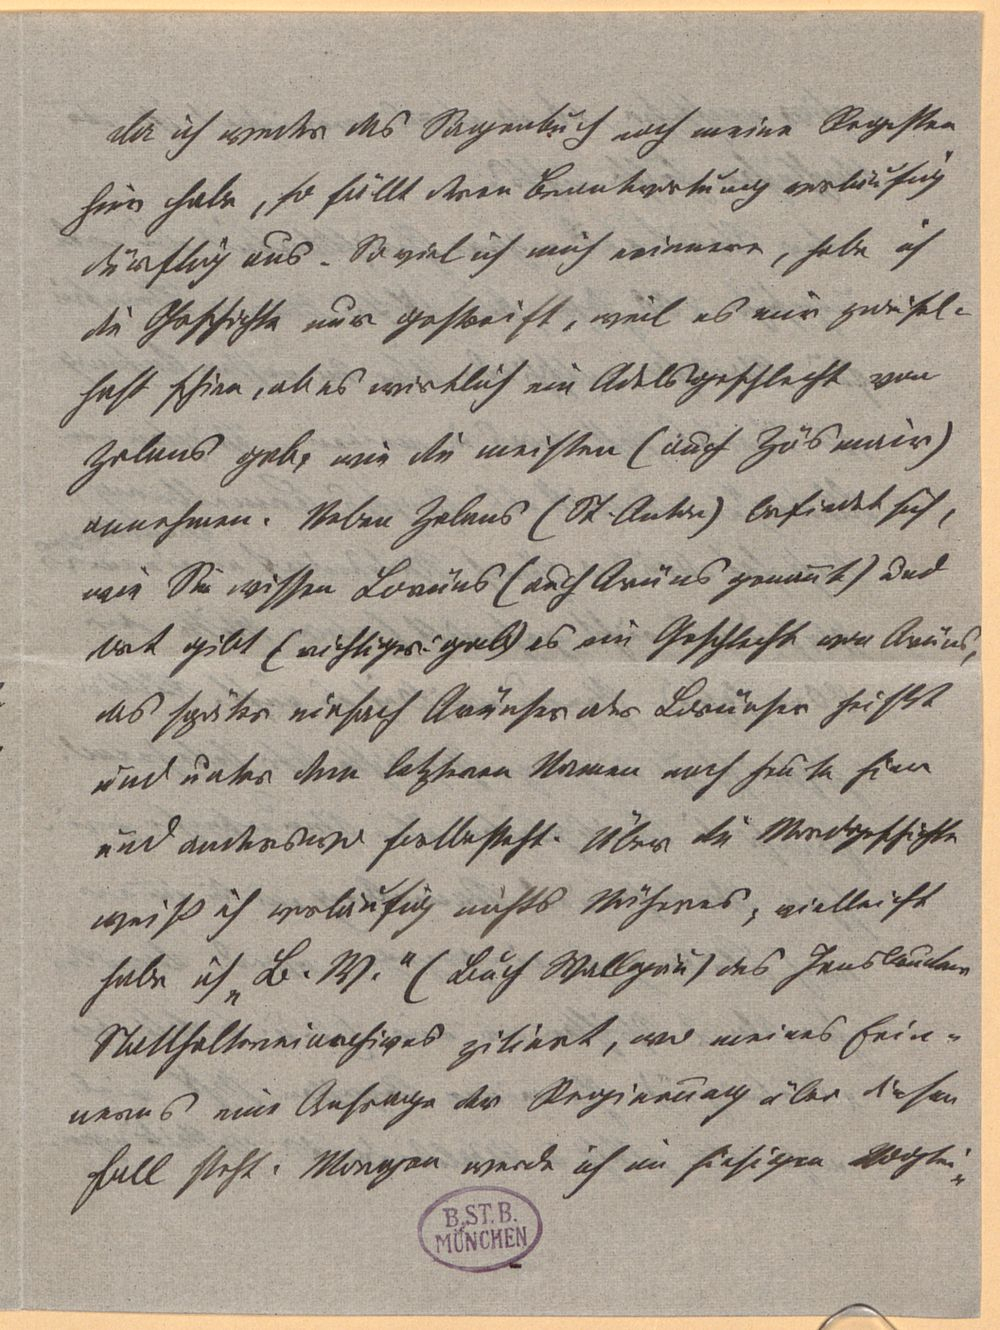 da ich weder das Sagenbuch noch meine Regesten
hier habe, so fällt deren Beantwortung vorläufig
dürftig aus. Soviel ich mich erinnere, habe ich
die Geschichte nur gestreift, weil es mir zweifel-
haft schien, ob es wirklich ein Adelsgeschlecht von
Zalans gab, wie die meisten (auch Zösmair)
annehmen. Neben Zalans (St. Anton) befindet sich,
wie Sie wissen Lorüns (auch Arüns genannt) und
dort gibt (richtiger: gab) es ein Geschlecht von Arüns,
das später einfach Arünser oder Lorünser heißt
und unter dem letzteren Namen noch heute hier
und anderswo fortbesteht. Über die Mordgeschichte
weiß ich vorläufig nichts Näheres, vielleicht
habe ich „B. W.“ (Buch Wallgau) des Innsbrucker
Statthaltereiarchives zitiert, wo meines Erin-
nerns eine Anfrage der Regierung über diesen
Fall steht. Morgen werde ich im hiesigen Vogtei-
B. ST. B.
MÜNCHEN